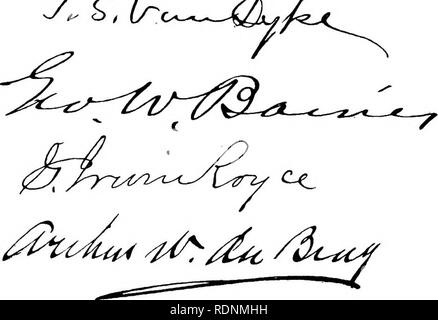 T. S. Van Dyke
Geo. W. Baines
G. Irwin Royce
Arthur W. du Bray
RDNMHH